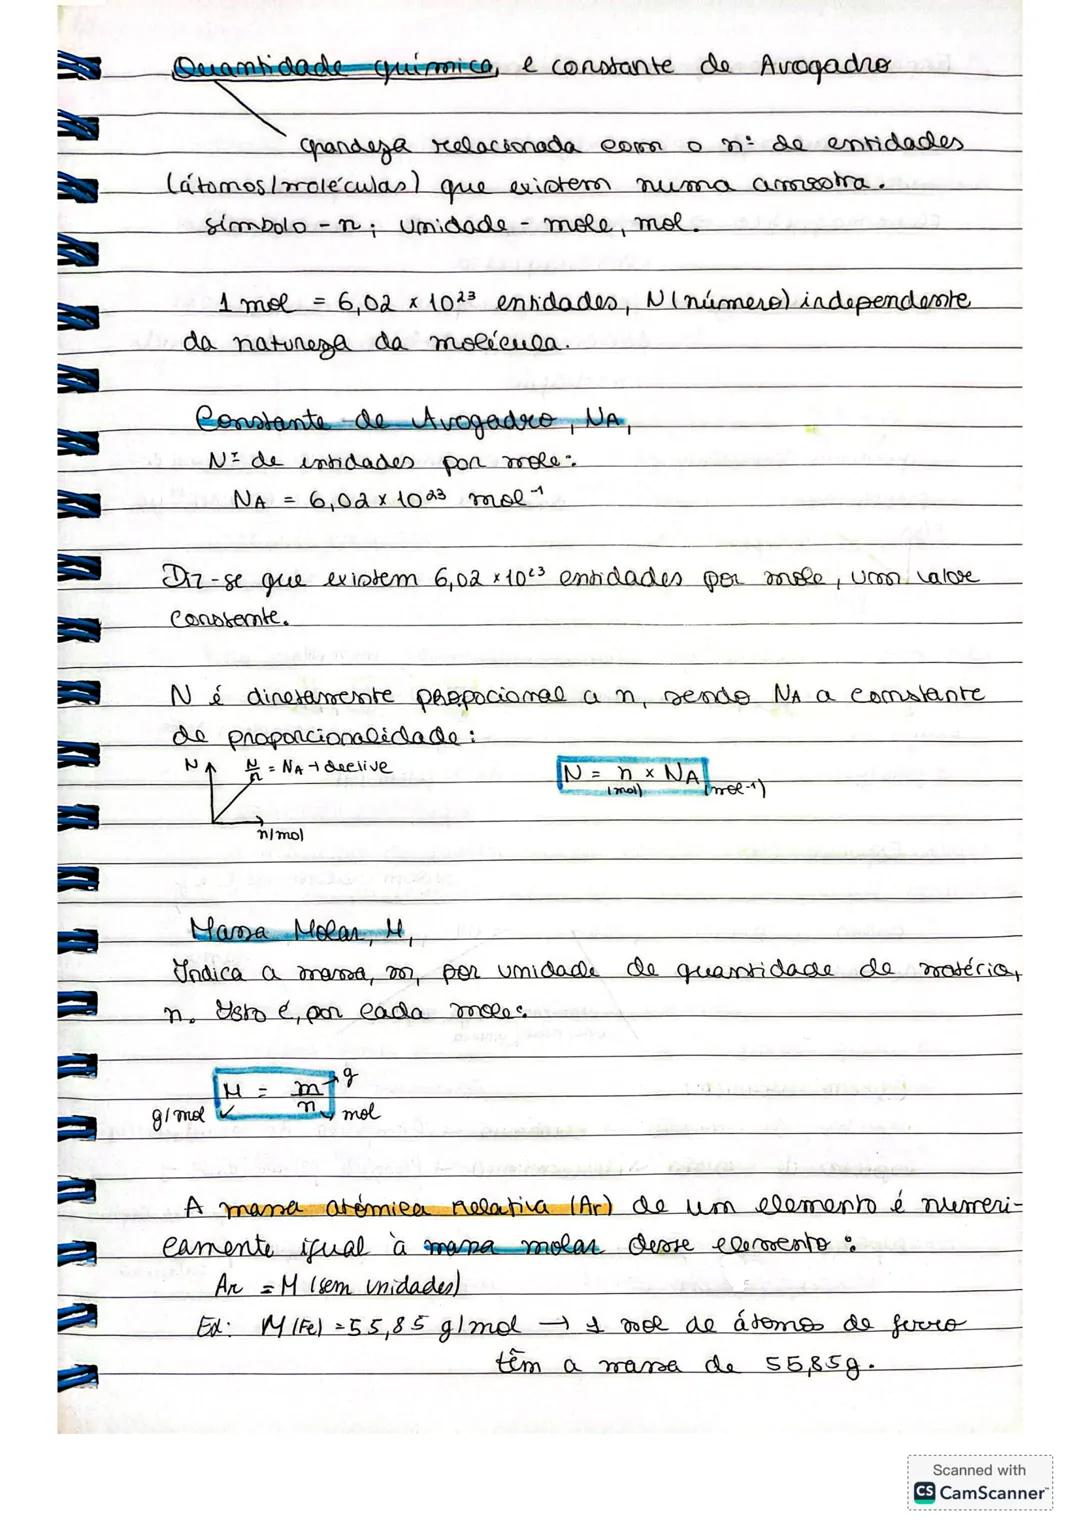 Quantidade química, e constante de Avogadro
grandeza relacionada com o nº de entidades
(átomos/moléculas) que existem numa amostra.
símbolo - n; unidade - mole, mol.
1 mol = 6,02 × 10²³ entidades, N (número) independente
da natureza da molécula.
Constante de Avogadro, NA,
Nº de entidades por mole:
NA = 6,02 × 10²³ mol⁻¹
Diz-se que existem 6,02 × 10²³ entidades por mole, um valor
constante.
N é diretamente propocional a n, sendo NA a constante
de proporcionalidade:
N
N/n = NA → declive
n/mol
N = n × NA
(mol) (mol⁻¹)
Massa Molar, M,
Indica a massa, m, por unidade de quantidade de matéria,
n. Isto é, por cada mole:
M = m/n
g/mol
g
mol
A massa atómica relativa (Ar) de um elemento é numeri-
camente igual à massa molar desse elemento:
Ar = M (sem unidades)
Ex: M(Fe) = 55,85 g/mol → 1 mol de átomos de ferro
têm a massa de 55,85g.
Scanned with
CS CamScanner